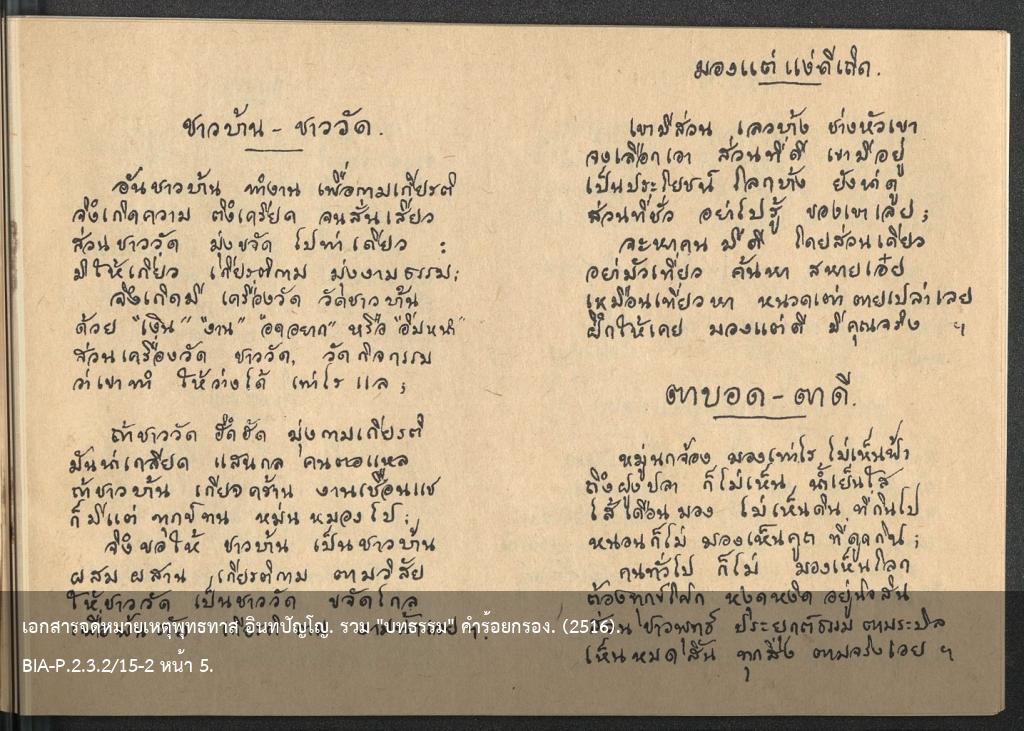 ชาวบ้าน - ชาววัด.
อันชาวบ้าน ทำงาน เพื่อกามเกียรติ
จึงเกิดความ ตึงเครียด จนสั่นเสียว
ส่วนชาววัด มุ่งขจัด ไปท่าเดียว :
มิให้เกี่ยว เกียรติกาม มุ่งงามธรรม;
จึงเกิดมี เครื่องวัด วัดชาวบ้าน
ด้วย "เงิน" "งาน" "อดอยาก" หรือ "อิ่มหนำ"
ส่วนเครื่องวัด ชาววัด, วัดกิจกรรม
ว่าเขาทำ ให้ว่างได้ เท่าไร แล ;
ถ้าชาววัด ฮึดฮัด มุ่งกามเกียรติ
มันน่าเกลียด แสนกล คนตอแหล
ถ้าชาวบ้าน เกียจคร้าน งานเชือนแช
ก็มีแต่ ทุกข์ทน หม่นหมองไป;
จึงขอให้ ชาวบ้าน เป็นชาวบ้าน
ผสมผสาน เกียรติกาม ตามวิสัย
ให้ชาววัด เป็นชาววัด ขจัดไกล
มองแต่ แง่ดีเถิด.
เขามีส่วน เลวบ้าง ช่างหัวเขา
จงเลือกเอา ส่วนที่ดี เขามีอยู่
เป็นประโยชน์ โลกบ้าง ยังน่าดู
ส่วนที่ชั่ว อย่าไปรู้ ของเขาเลย ;
จะหาคน มีดี โดยส่วนเดียว
อย่ามัวเที่ยว ค้นหา สหายเอ๋ย
เหมือนเที่ยวหา หนวดเต่า ตายเปล่าเลย
ฝึกให้เคย มองแต่ดี มีคุณจริง ฯ
ตาบอด - ตาดี.
หมู่นกจ้อง มองเท่าไร ไม่เห็นฟ้า
ถึงฝูงปลา ก็ไม่เห็น น้ำเย็นใส
ไส้เดือนมอง ไม่เห็นดิน ที่กินไป
หนอนก็ไม่ มองเห็นคูถ ที่ดูดกิน ;
คนทั่วไป ก็ไม่ มองเห็นโลก
ต้องทุกข์โศก หงุดหงิด อยู่นิจสิน
ส่วนชาวพุทธ ประยุกต์ธรรม ตามระบิล
เห็นหมดสิ้น ทุกสิ่ง ตามจริงเอย ฯ
เอกสารจดหมายเหตุพุทธทาส อินทปัญโญ. รวม "บทธรรม" คำร้อยกรอง. (2516).
BIA-P.2.3.2/15-2 หน้า 5.